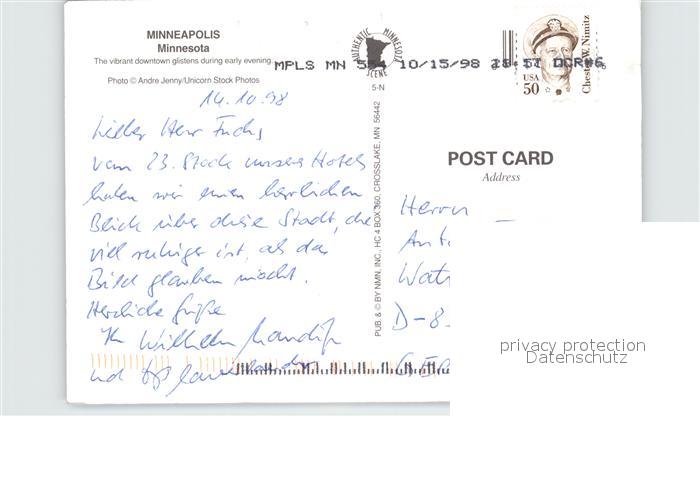 MINNEAPOLIS
Minnesota
The vibrant downtown glistens during early evening.
Photo © Andre Jenny/Unicorn Stock Photos
AUTHENTIC MINNESOTA SCENE
MPLS MN 554 10/15/98 DCR#6
USA
50
Chester W. Nimitz
5-N
14.10.98
Lieber Herr Fuchs
vom 23. Stock unseres Hotels
haben wir einen herrlichen
Blick über diese Stadt, die
viel ruhiger ist, als das
Bild glauben macht.
Herzliche Grüße
Ihr Wilhelm
und
PUB. & © BY NMN, INC., HC 4 BOX 360, CROSSLAKE, MN 56442
POST CARD
Address
Herrn
D-8
privacy protection
Datenschutz